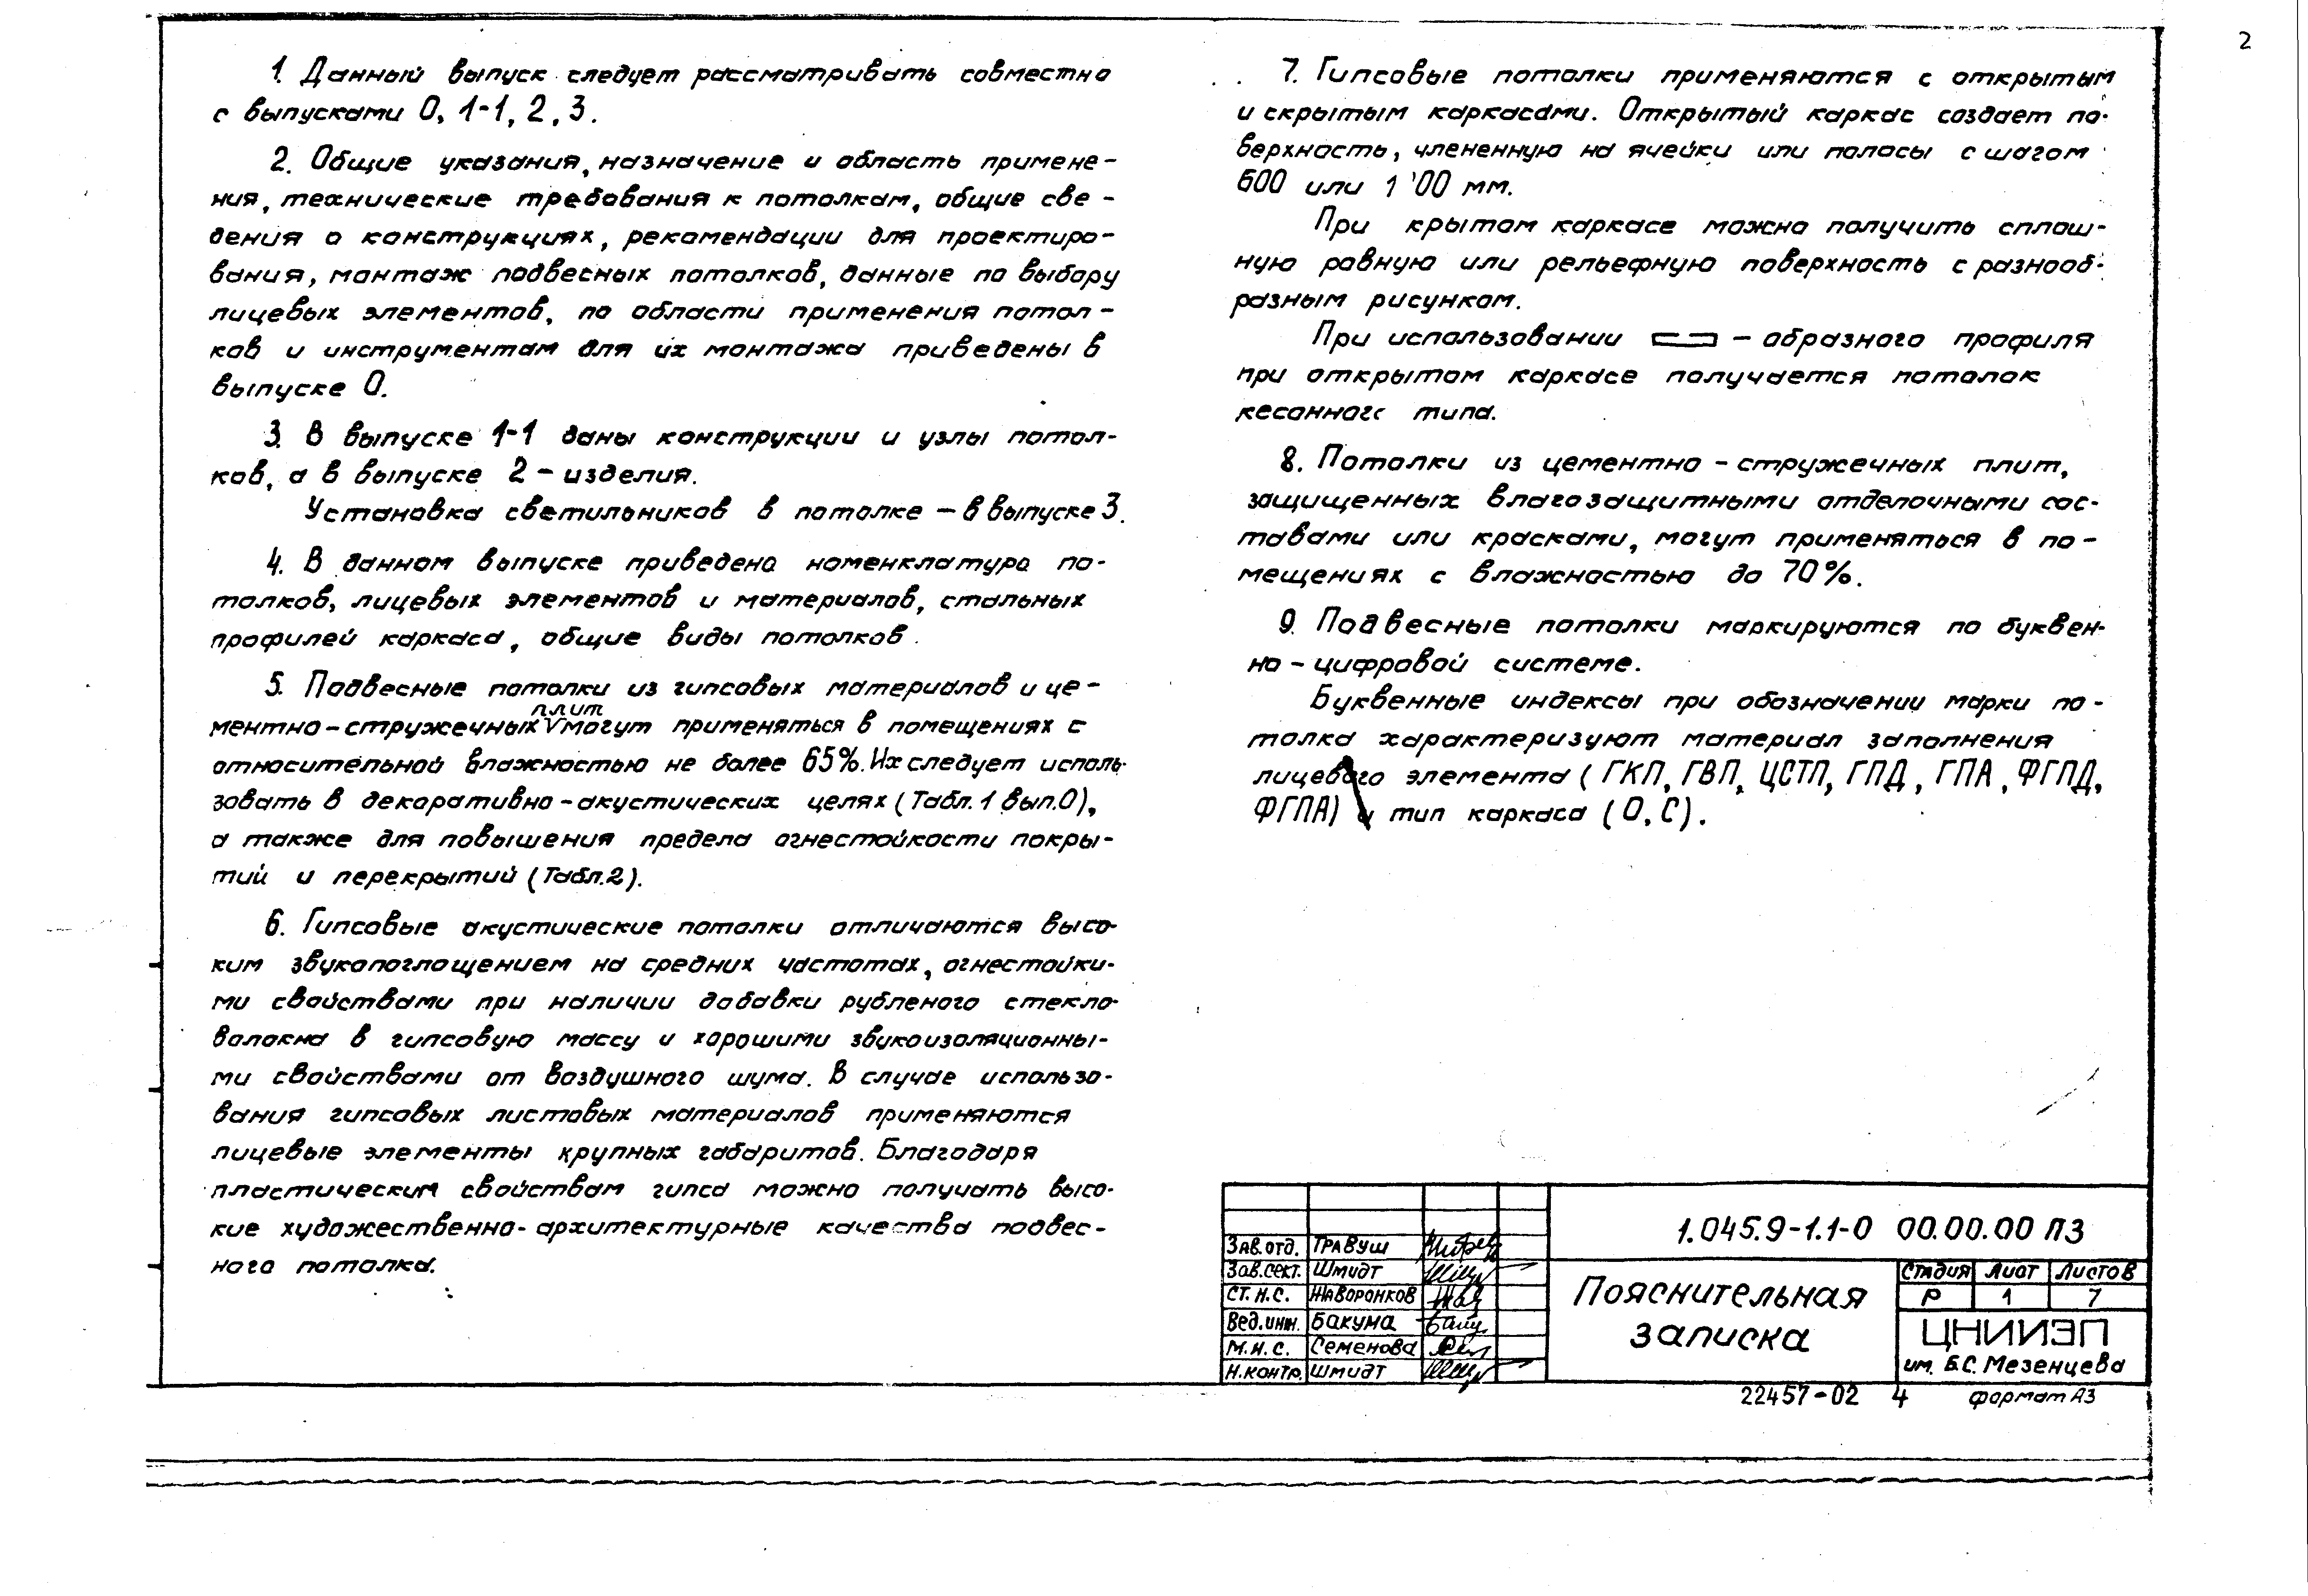 2
1. Данный выпуск следует рассматривать совместно
с выпусками 0, 1-1, 2, 3.
2. Общие указания, назначение и область примене-
ния, технические требования к потолкам, общие све-
дения о конструкциях, рекомендации для проектиро-
вания, монтаж подвесных потолков, данные по выбору
лицевых элементов, по области применения потол-
ков и инструментам для их монтажа приведены в
выпуске 0.
3. В выпуске 1-1 даны конструкции и узлы потол-
ков, а в выпуске 2 - изделия.
Установка светильников в потолке - в выпуске 3.
4. В данном выпуске приведена номенклатура по-
толков, лицевых элементов и материалов, стальных
профилей каркаса, общие виды потолков.
5. Подвесные потолки из гипсовых материалов и це-
плит
ментно-стружечных V могут применяться в помещениях с
относительной влажностью не более 65%. Их следует исполь-
зовать в декоративно-акустических целях (Табл. 1 вып.0),
а также для повышения предела огнестойкости покры-
тий и перекрытий (Табл.2).
6. Гипсовые акустические потолки отличаются высо-
ким звукопоглощением на средних частотах, огнестойки-
ми свойствами при наличии добавки рубленого стекло-
волокна в гипсовую массу и хорошими звукоизоляционны-
ми свойствами от воздушного шума. В случае использо-
вания гипсовых листовых материалов применяются
лицевые элементы крупных габаритов. Благодаря
пластическим свойствам гипса можно получать высо-
кие художественно-архитектурные качества подвес-
ного потолка.
7. Гипсовые потолки применяются с открытым
и скрытым каркасами. Открытый каркас создает по-
верхность, члененную на ячейки или полосы с шагом
600 или 1 00 мм.
При крытом каркасе можно получить сплош-
ную ровную или рельефную поверхность с разнооб-
разным рисунком.
При использовании - образного профиля
при открытом каркасе получается потолок
кесонного типа.
8. Потолки из цементно-стружечных плит,
защищенных влагозащитными отделочными сос-
тавами или красками, могут применяться в по-
мещениях с влажностью до 70%.
9. Подвесные потолки маркируются по буквен-
но-цифровой системе.
Буквенные индексы при обозначении марки по-
толка характеризуют материал заполнения
лицевого элемента (ГКП, ГВП, ЦСТП, ГПД, ГПА, ФГПД,
ФГПА) и тип каркаса (О, С).
1.045.9-1.1-0 00.00.00 ПЗ
Зав.отд. Травуш
Зав.сект. Шмидт
Ст.н.с. Жаворонков
Вед.инж. Бакума
М.н.с. Семенова
Н.контр. Шмидт
Пояснительная
записка
Стадия Лист Листов
Р 1 7
ЦНИИЭП
им. Б.С. Мезенцева
22457-02 4 формат А3